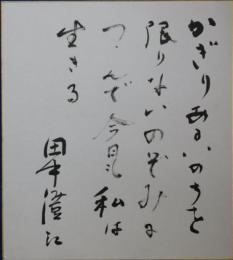 かぎりあるいのちを
限りないのぞみに
つゝんで今日も私は
生きる
田中澄江